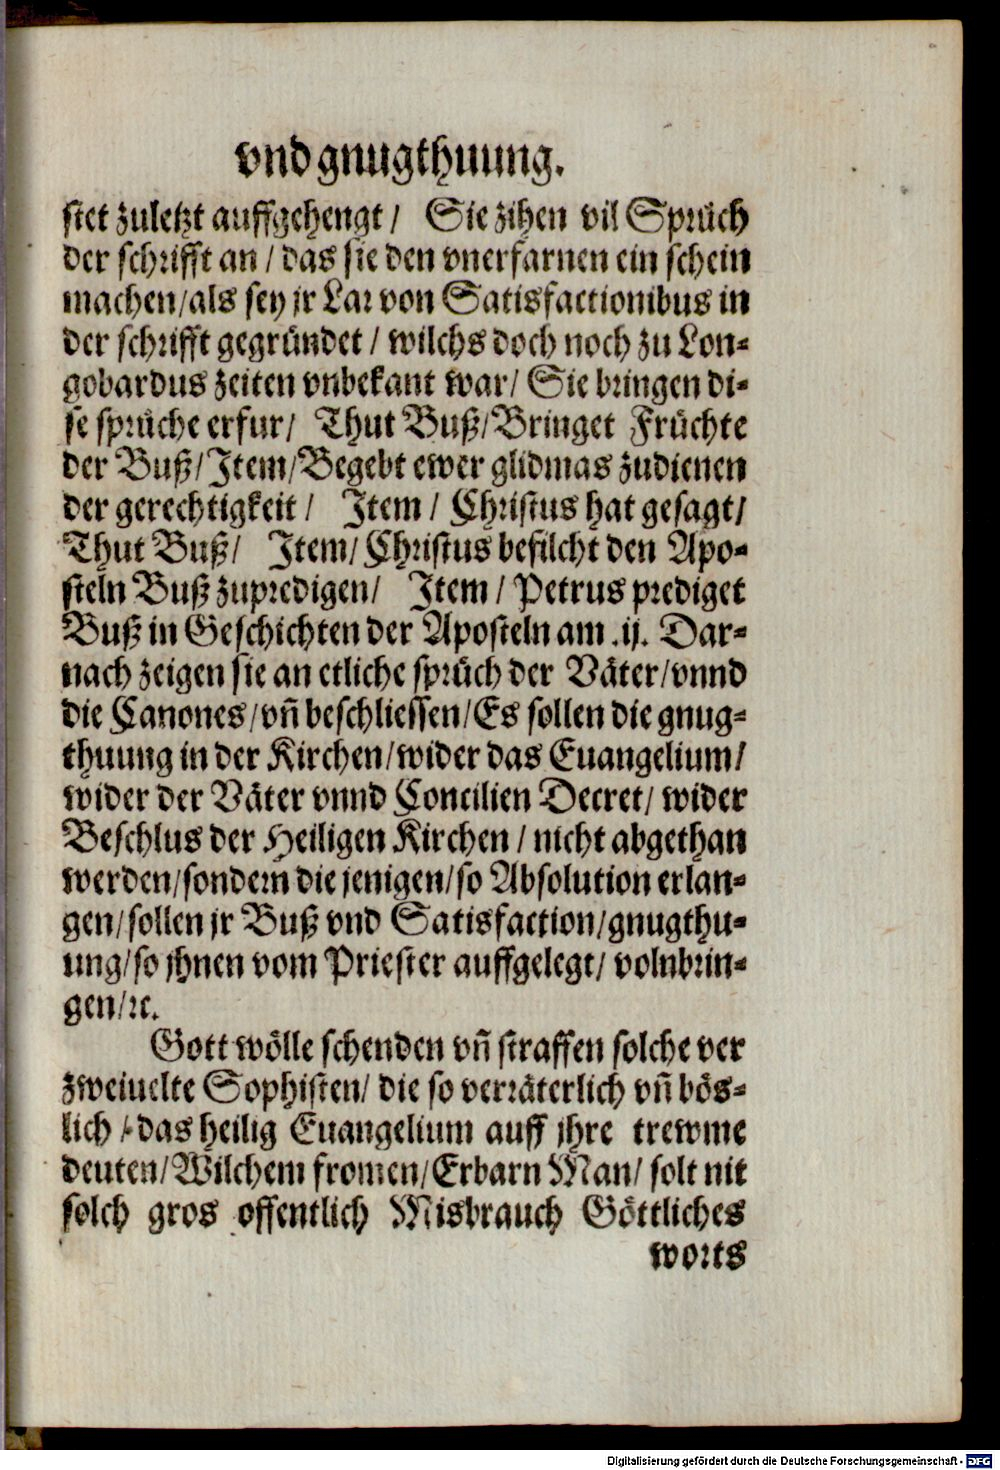 vnd gnugthuung.
stet zuletzt auffgehengt / Sie zihen vil Sprüch
der schrifft an / das sie den vnerfarnen ein schein
machen / als sey jr Lar von Satisfactionibus in
der schrifft gegründet / wilchs doch noch zu Lon-
gobardus zeiten vnbekant war / Sie bringen di-
se sprüche erfur / Thut Buß / Bringet Früchte
der Buß / Item / Begebt ewer glidmas zudienen
der gerechtigkeit / Item / Christus hat gesagt /
Thut Buß / Item / Christus befilcht den Apo-
steln Buß zupredigen / Item / Petrus prediget
Buß in Geschichten der Aposteln am .ij. Dar-
nach zeigen sie an etliche sprüch der Väter / vnnd
die Canones / vñ beschliessen / Es sollen die gnug-
thuung in der Kirchen / wider das Euangelium /
wider der Väter vnnd Concilien Decret / wider
Beschlus der Heiligen Kirchen / nicht abgethan
werden / sondern die jenigen / so Absolution erlan-
gen / sollen jr Buß vnd Satisfaction / gnugthu-
ung / so jhnen vom Priester auffgelegt / volnbrin-
gen / ꝛc.
Gott wölle schenden vñ straffen solche ver
zweiuelte Sophisten / die so verräterlich vñ bös-
lich / das heilig Euangelium auff jhre trewme
deuten / Wilchem fromen / Erbarn Man / solt nit
solch gros offentlich Misbrauch Göttliches
worts
Digitalisierung gefördert durch die Deutsche Forschungsgemeinschaft - DFG